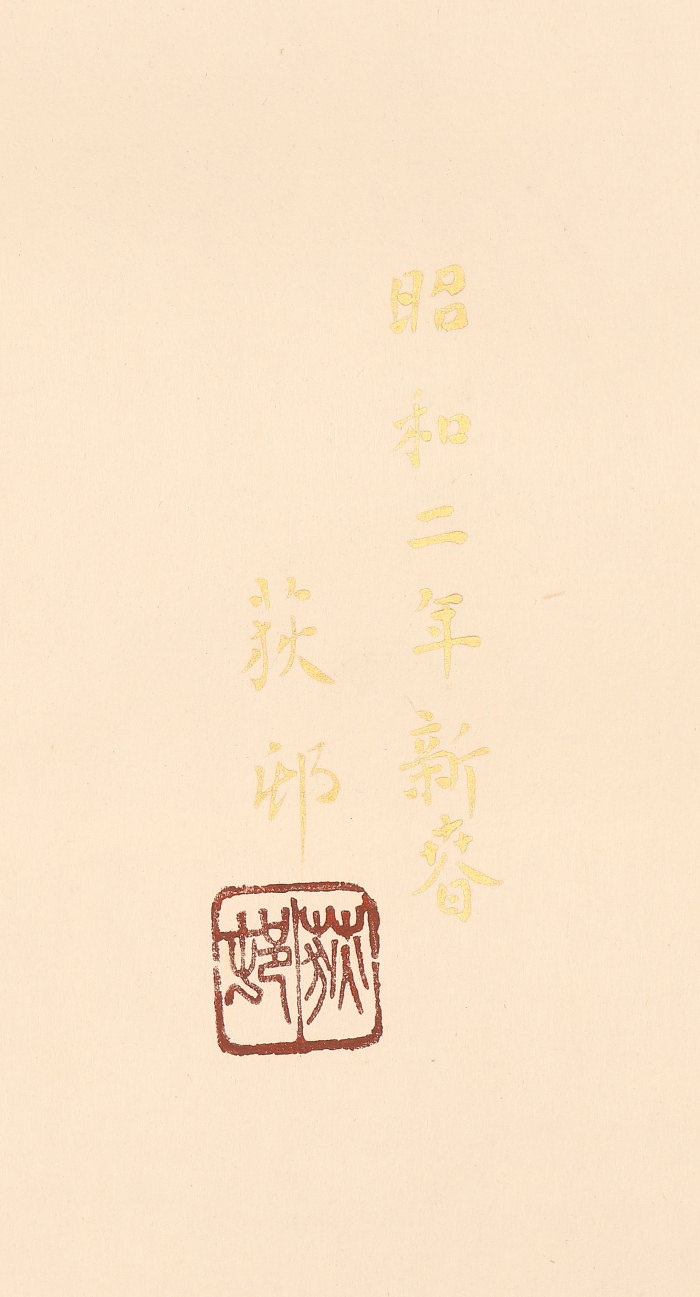 昭和二年新春
荻邨
荻邨